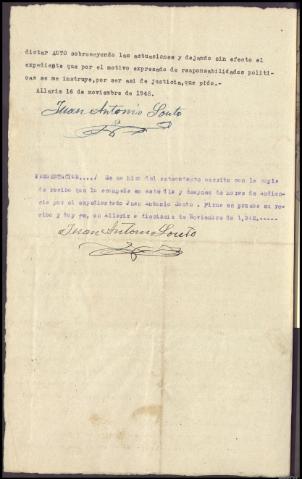 dictar AUTO sobreseyendo las actuaciones y dejando sin efecto el
expediente que por el motivo expresado de responsabilidades politi-
cas se me instruye, por ser asi de justicia, que pido.-
Allariz 16 de noviembre de 1942.
Juan Antonio Souto
PRESENTACION..../ Se me hizo del antecedente escrito con la copia
de recibo que lo acompaña en este dia y despues de horas de audien-
cia por el expedientado Juan Antonio Souto . Firma en prueba su re-
cibo y doy fe, en Allariz a de Noviembre de 1,942.-----
Juan Antonio Souto